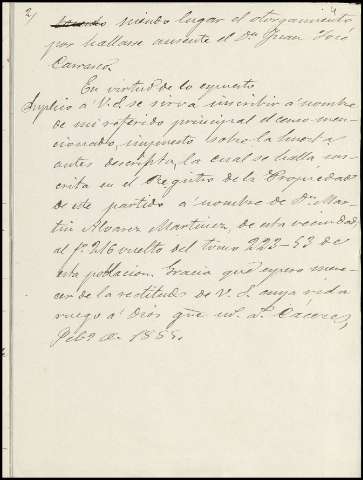 2
siendo lugar el otorgamiento
por hallarse ausente el Dn Juan José
Carrasco.
En virtud de lo espuesto
Suplico a V. S. se sirva inscribir á nombre
de mi referido principal el censo men-
cionado, impuesto sobre la huerta
antes descripta, la cual se halla ins-
crita en el Registro de la Propiedad
de este partido á nombre de Dn Mar-
tin Alvarez Martinez, de esta vecindad,
al fo 216 vuelto del tomo 223-53 de
esta poblacion. Gracia que espero mere-
cer de la rectitud de V. S. cuya vida
ruego á Dios gue ms. as. Cáceres,